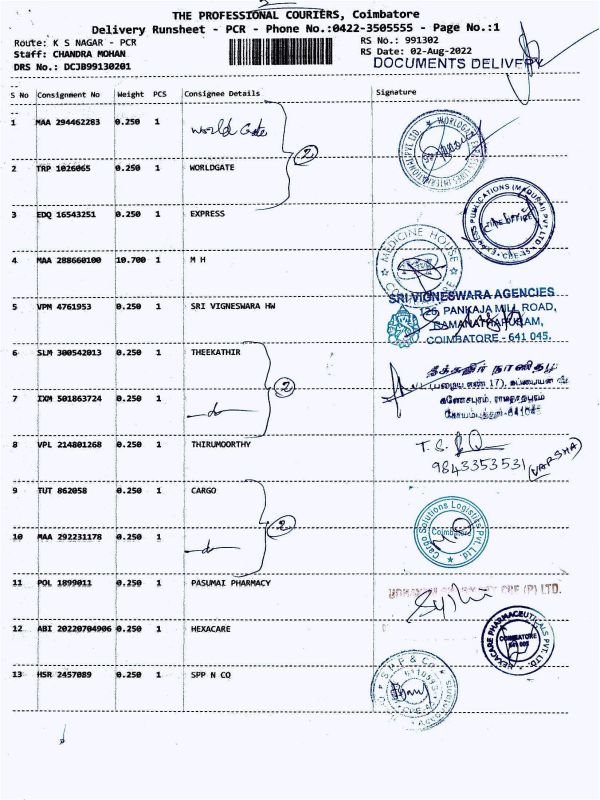 THE PROFESSIONAL COURIERS, Coimbatore
Delivery Runsheet - PCR - Phone No.:0422-3505555 - Page No.:1
Route: K S NAGAR - PCR
RS No.: 991302
Staff: CHANDRA MOHAN
RS Date: 02-Aug-2022
DRS No.: DCJB99130201
DOCUMENTS DELIVERY
S No Consignment No Weight PCS Consignee Details Signature
1 MAA 294462283 0.250 1 World Gate
2
2 TRP 1026065 0.250 1 WORLDGATE
3 EDQ 16543251 0.250 1 EXPRESS
EXPRESS PUBLICATIONS (MADURAI) PVT. LTD. CBE-45
4 MAA 288660100 10.700 1 M H
MEDICINE HOUSE
5 VPM 4761953 0.250 1 SRI VIGNESWARA HW
SRI VIGNESWARA AGENCIES
126, PANKAJA MILL ROAD,
RAMANATHAPURAM,
COIMBATORE - 641 045.
6 SLM 300542013 0.250 1 THEEKATHIR
2
7 IXM 501863724 0.250 1 -do-
8 VPL 214801268 0.250 1 THIRUMOORTHY
9843353531
(VARSHA)
9 TUT 862058 0.250 1 CARGO
2
Cargo Solutions Logistics Pvt. Ltd
Coimbatore
10 MAA 292231178 0.250 1 -do-
11 POL 1899011 0.250 1 PASUMAI PHARMACY
CBE (P) LTD.
12 ABI 20220704906 0.250 1 HEXACARE
HEXACARE PHARMACEUTICALS PVT. LTD.
COIMBATORE
641 005
13 HSR 2457089 0.250 1 SPP N CO